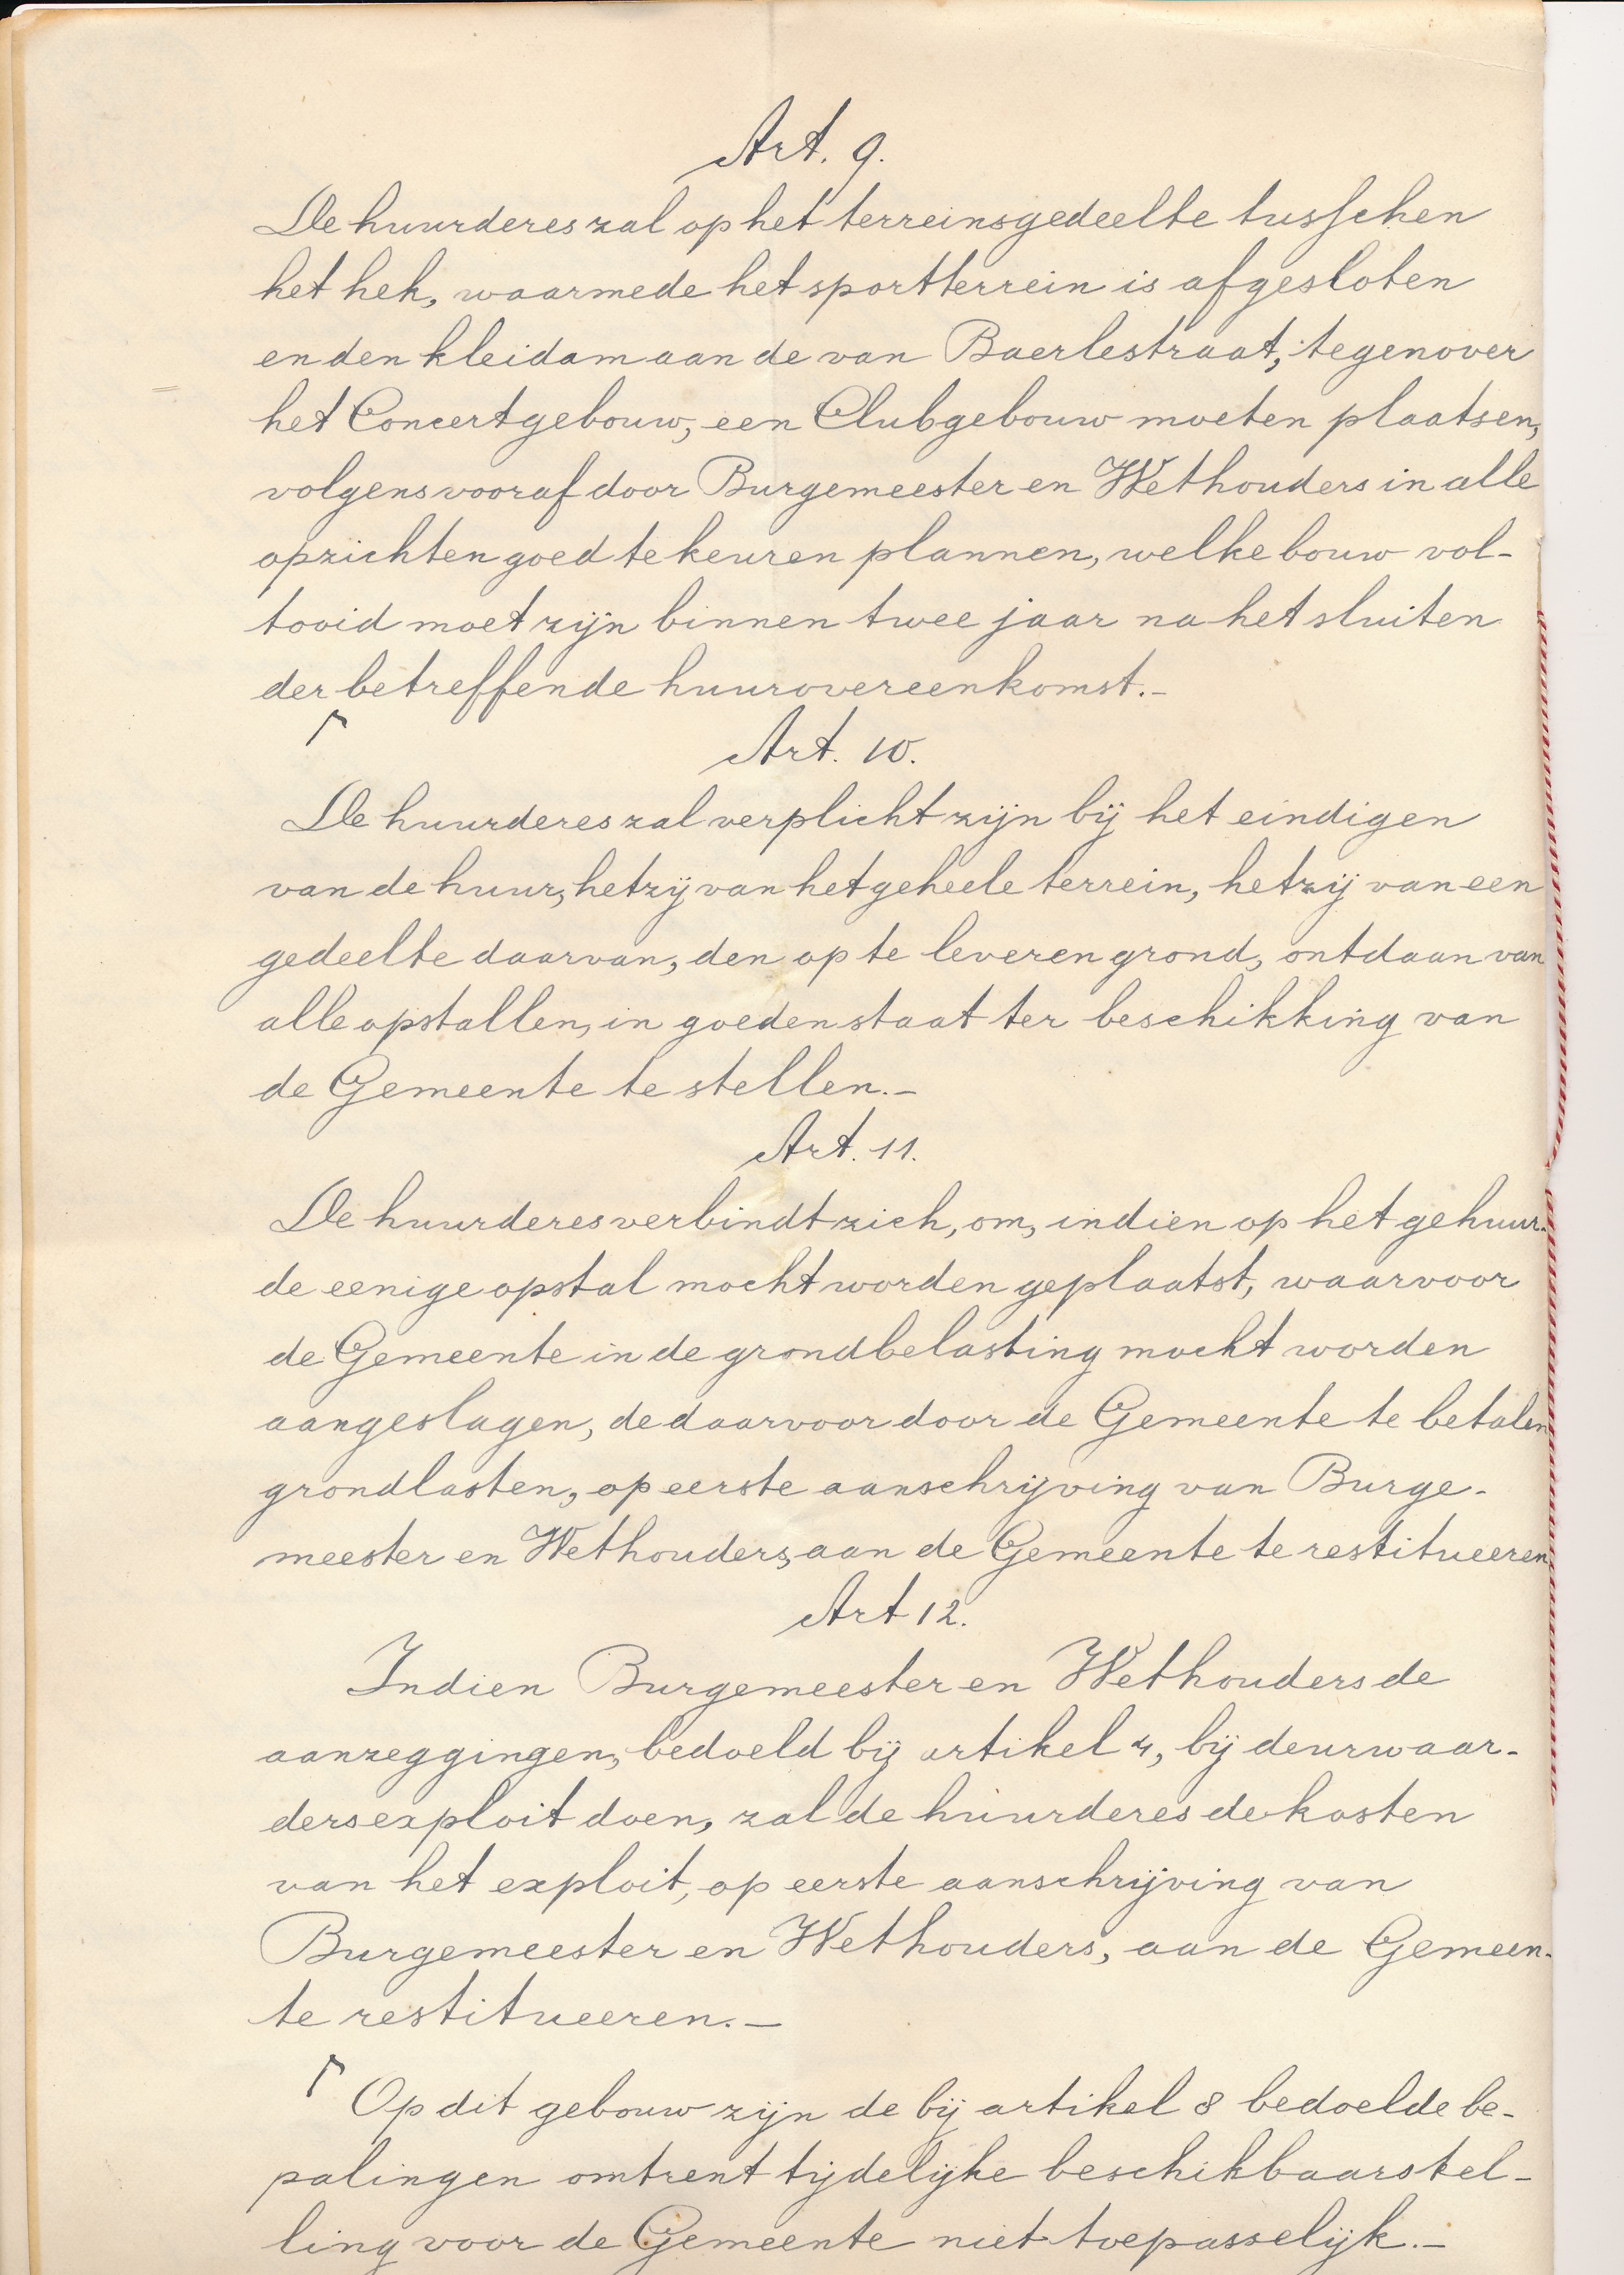 Art. 9.
De huurderes zal op het terreinsgedeelte tusschen
het hek, waarmede het sportterrein is afgesloten
en den kleidam aan de van Baerlestraat, tegenover
het Concertgebouw, een Clubgebouw moeten plaatsen,
volgens vooraf door Burgemeester en Wethouders in alle
opzichten goed te keuren plannen, welke bouw vol-
tooid moet zijn binnen twee jaar na het sluiten
der betreffende huurovereenkomst.-
┌
Art. 10.
De huurderes zal verplicht zijn bij het eindigen
van de huur, hetzij van het geheele terrein, hetzij van een
gedeelte daarvan, den op te leveren grond, ontdaan van
alle opstallen, in goeden staat ter beschikking van
de Gemeente te stellen.-
Art. 11.
De huurderes verbindt zich, om, indien op het gehuur-
de eenige opstal mocht worden geplaatst, waarvoor
de Gemeente in de grondbelasting mocht worden
aangeslagen, de daarvoor door de Gemeente te betalen
grondlasten, op eerste aanschrijving van Burge-
meester en Wethouders, aan de Gemeente te restitueeren
Art 12.
Indien Burgemeester en Wethouders de
aanzeggingen, bedoeld bij artikel 4, bij deurwaar-
dersexploit doen, zal de huurderes de kosten
van het exploit, op eerste aanschrijving van
Burgemeester en Wethouders, aan de Gemeen-
te restitueeren.-
┌ Op dit gebouw zijn de bij artikel 8 bedoelde be-
palingen omtrent tijdelijke beschikbaarstel-
ling voor de Gemeente niet toepasselijk.-